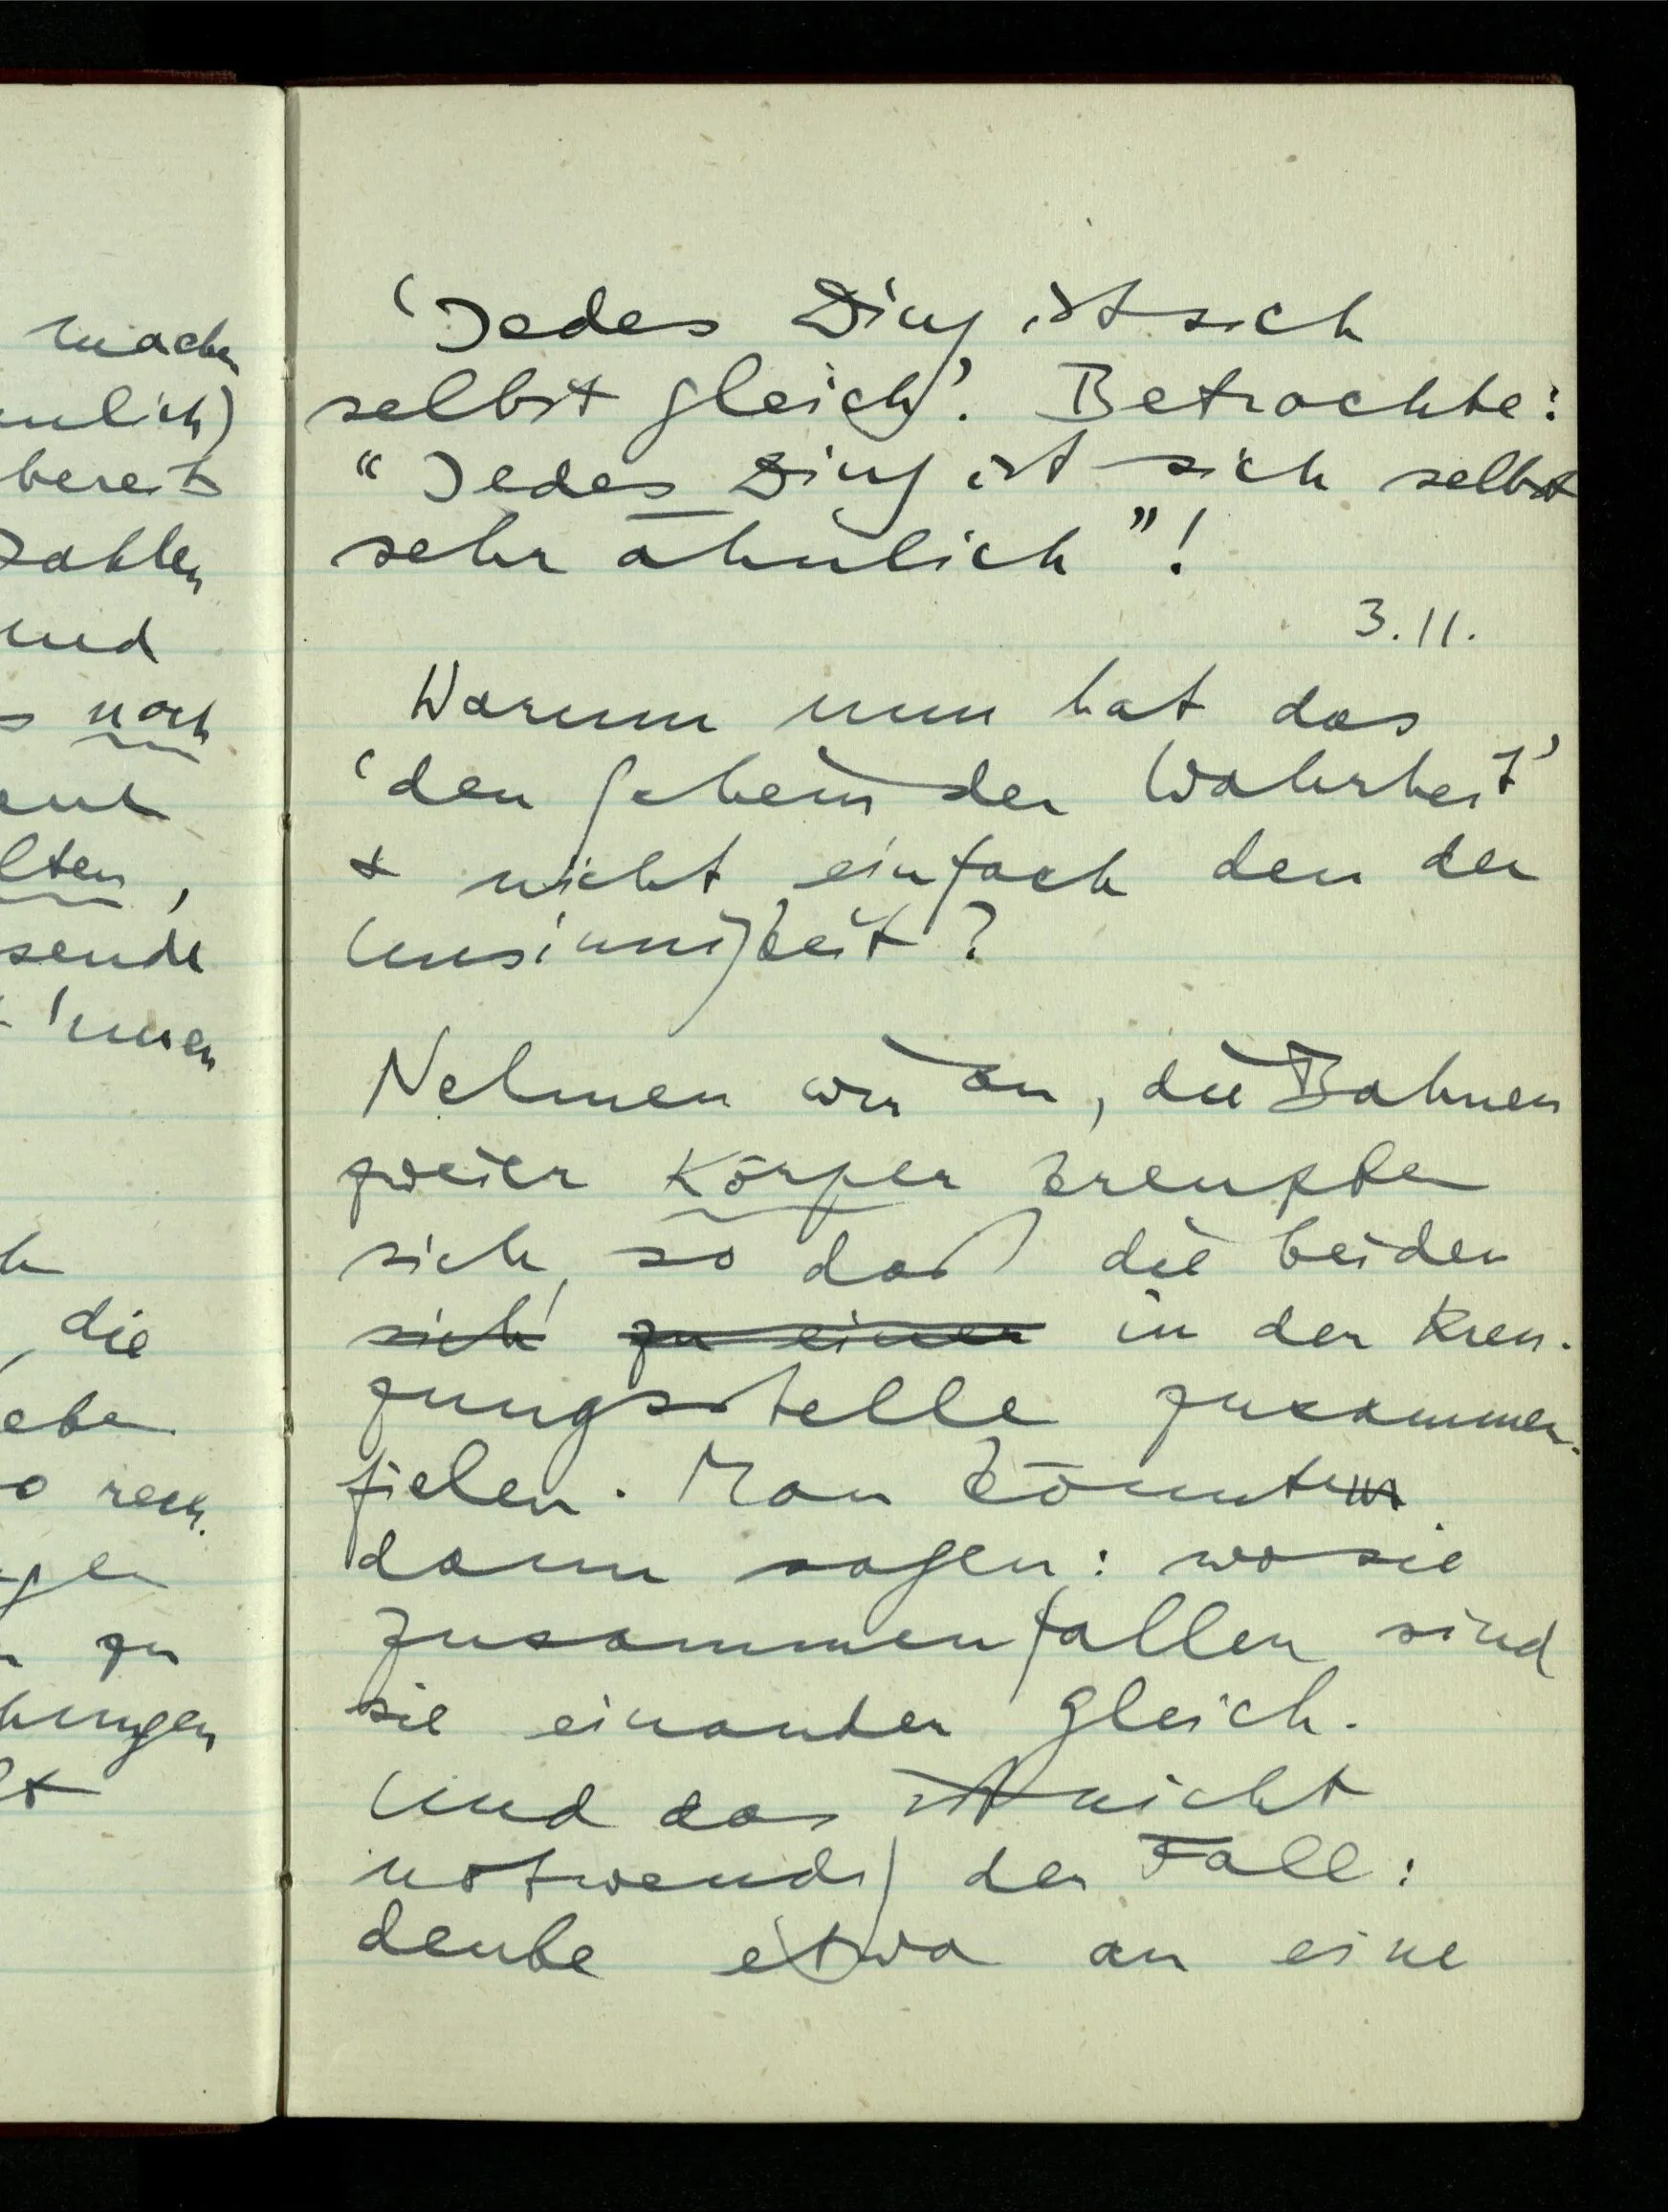 machen
nlich)
bereits
Zahlen
und
noch
lten,
sende
h
, die
zu
'Jedes Ding ist sich
selbst gleich'. Betrachte:
"Jedes Ding ist sich selbst
sehr ähnlich"!
3.11.
Warum nun hat das
'den Schein der Wahrheit'
& nicht einfach den der
Unsinnigkeit?
Nehmen wir an, die Bahnen
zweier Körper kreuzten
sich, so daß die beiden
sich zu einer in der Kreu-
zungsstelle zusammen-
fielen. Man könnte
dann sagen: wo sie
zusammenfallen sind
sie einander gleich.
Und das ist nicht
notwendig der Fall:
denke etwa an eine